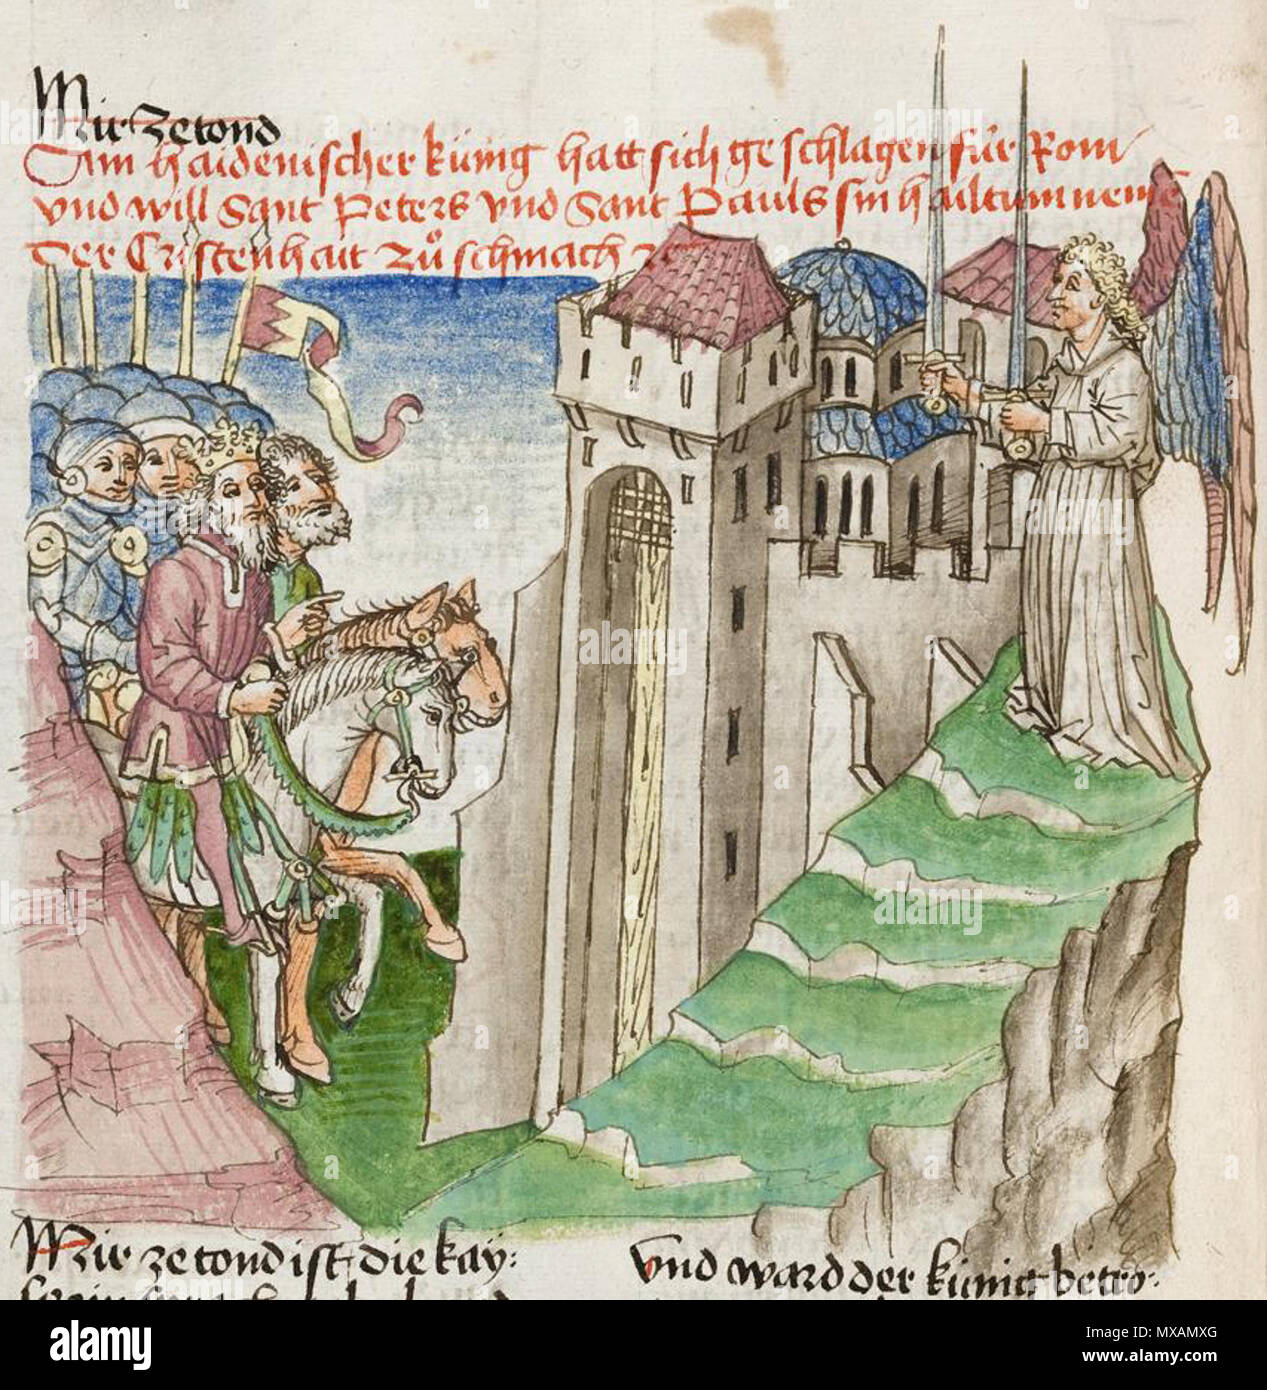 Mir zetond
Ain haidenischer küng hatt sich geschlagen für Rom
vnd will Sant Peters vnd Sant Pauls sin hailtum neme
der Cristenhait zů schmach
Mir zetond ist die kay:
vnd ward der künig betro:
alamy
Image ID: MXAMXG
www.alamy.com